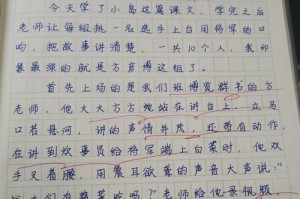 今天学了小岛这篇课文，学完之后
老师让每组挑一名选手上台用将军的口
吻，把故事讲清楚，一共10个人，我印
象最深的就是方启博这组了。
首先上场的是我们班博览群书的方
老师，他大大方方地站在讲台上，立马
口若悬河，讲的声情并茂，还带有动作，
在讲到炊事员给将军端上白菜时，他双
手叉着腰，用震耳欲聋的声音大声说：“
有 菜吃吗？”老师给他录视频，